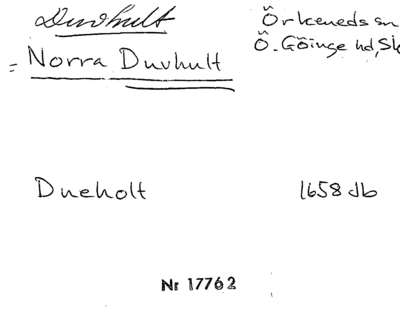 Duvhult
Örkeneds sn
Ö. Göinge hd, Sk
= Norra Duvhult
Dueholt 1658 Jb
Nr 17762